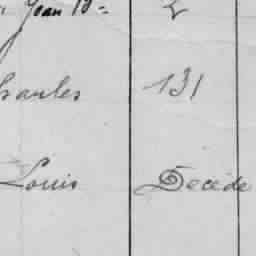 Jean B.
Charles 131
Louis Décédé